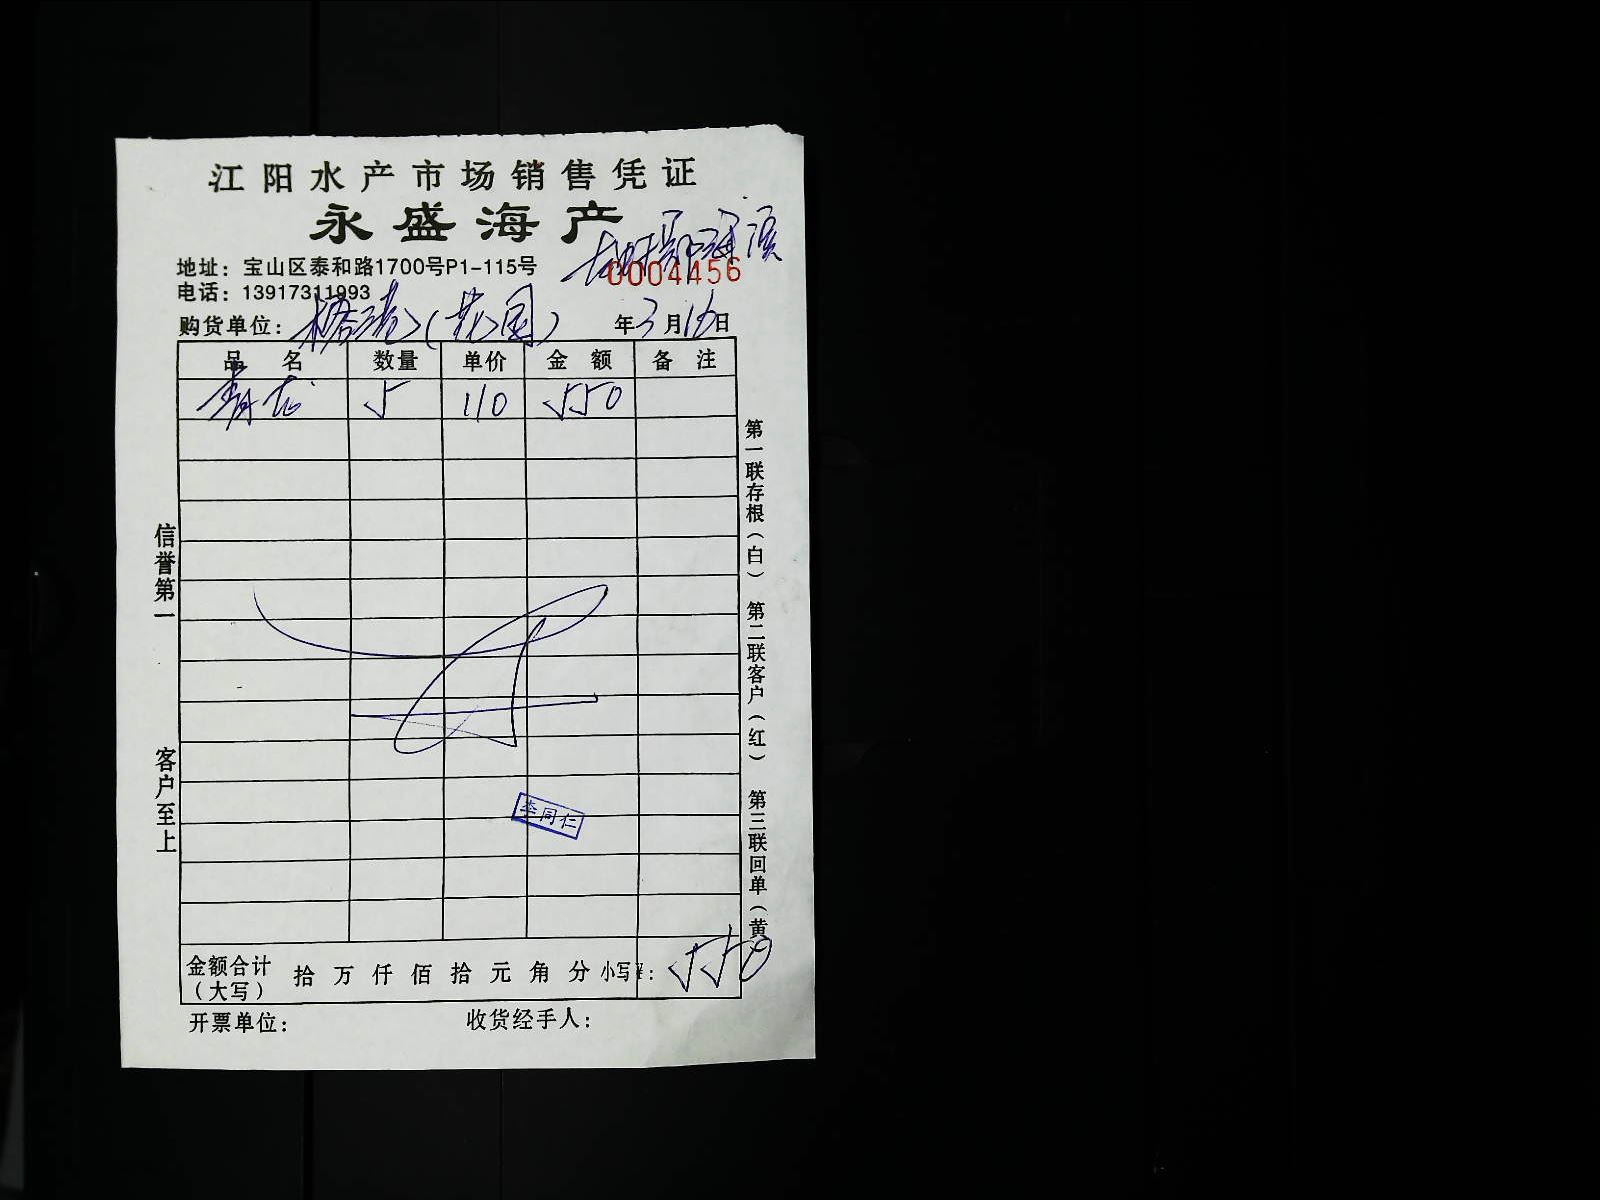 江阳水产市场销售凭证
永盛海产
地址：宝山区泰和路1700号P1-115号
0004456
电话：13917311993
购货单位： (花园) 年3月16日
品名 数量 单价 金额 备注
青龙 5 110 550
信誉第一 客户至上
第一联存根（白） 第二联客户（红） 第三联回单（黄
李同仁
金额合计（大写） 拾万仟佰拾元角分 小写¥： 550
开票单位： 收货经手人：